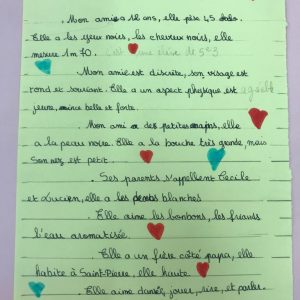 Mon amie a 12 ans, elle pèse 45 kilos.
Elle a les yeux noirs, les cheveux noirs, elle
mesure 1m70. est une élève de 5e3
Mon amie est discrète, son visage est
rond et souriant. Elle a un aspect physique est agréable
jeune, mince belle et forte.
Mon ami a des petites mains, elle
a la peau noire. Elle a la bouche très grande, mais
son nez est petit.
Ses parents s'appellent Cécile
et Lucien, elle a les dents blanches
Elle aime les bonbons, les friands
l'eau aromatisée.
Elle a un frère côté papa, elle
habite à Saint-Pierre, elle haute.
Elle aime danser, jouer, rire, et parler.